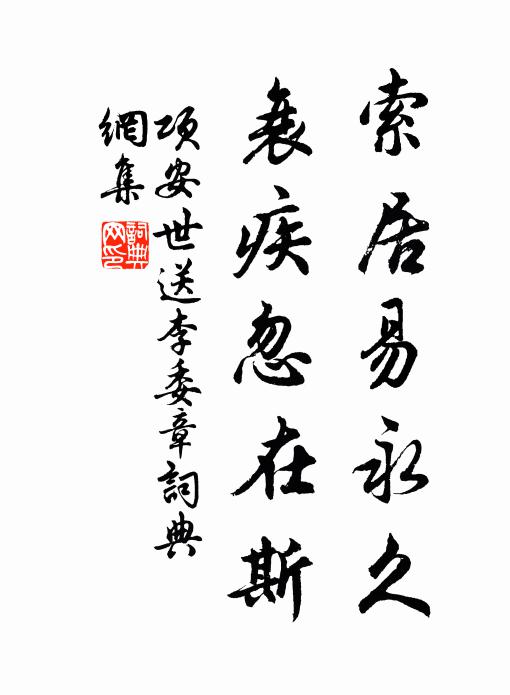 索居易永久
衰疾忽在斯
項安世送李委章詞典
網集
詞典
网印